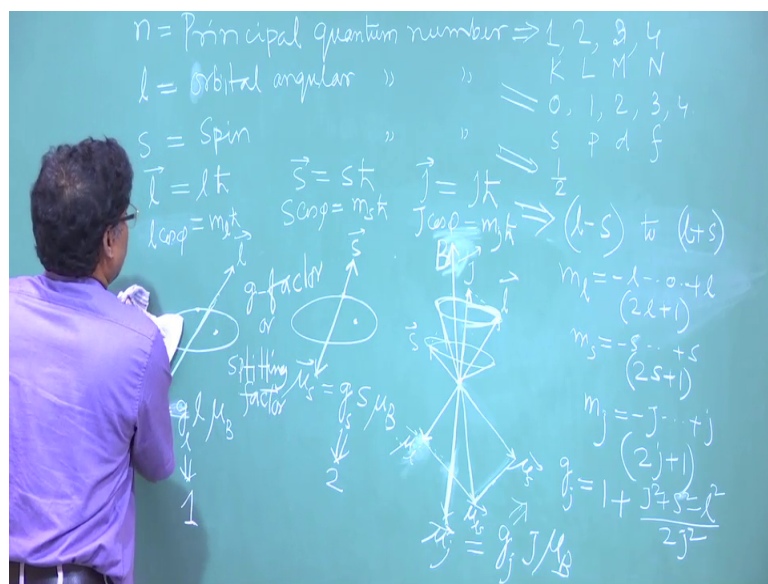 n = Principal quantum number ⇒ 1, 2, 3, 4
K L M N
l = orbital angular " " ⇒ 0, 1, 2, 3, 4
s p d f
s = Spin " " ⇒ 1/2
l⃗ = lħ s⃗ = sħ J⃗ = jħ
l cosφ = mₗħ s cosφ = mₛħ J cosφ = mⱼħ ⇒ (l-s) to (l+s)
l⃗ s⃗ B J l⃗
g-factor
or
splitting
factor
s⃗
mₗ = -l - - 0 - - +l
(2l+1)
mₛ = -s - - - +s
(2s+1)
mⱼ = -j - - - +j
(2j+1)
gₗ l μB
1
μ⃗ₛ = gₛ s μB
2
μⱼ = gⱼ J μB
gⱼ = 1 + (J² + s² - l²)/2J²